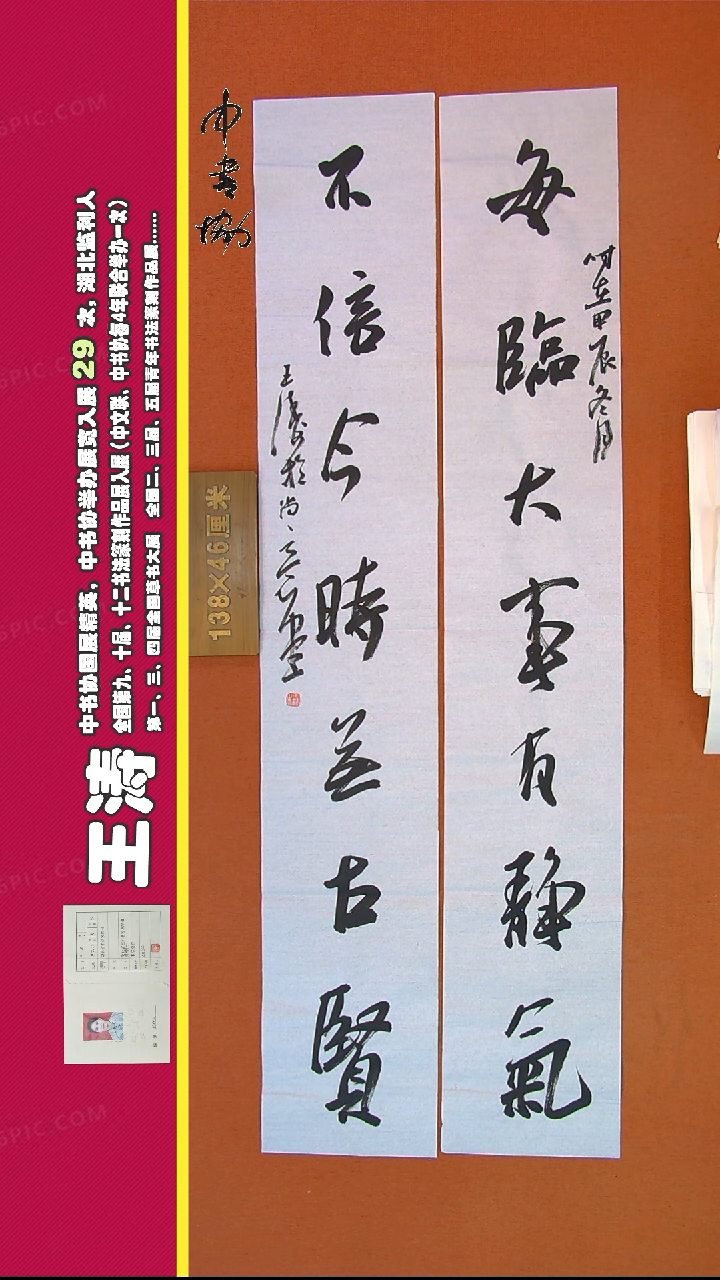 每臨大事有靜氣
時在甲辰冬月
不信今時無古賢
王濤於尚
中書協
138×46厘米
王涛
中书协国展精英，中书协举办展览入展29次，湖北监利人
全国第九、十届、十二书法篆刻作品展入展（中文联、中书协每4年联合举办一次）
第一、三、四届全国草书大展 全国二、三届、五届青年书法篆刻作品展……